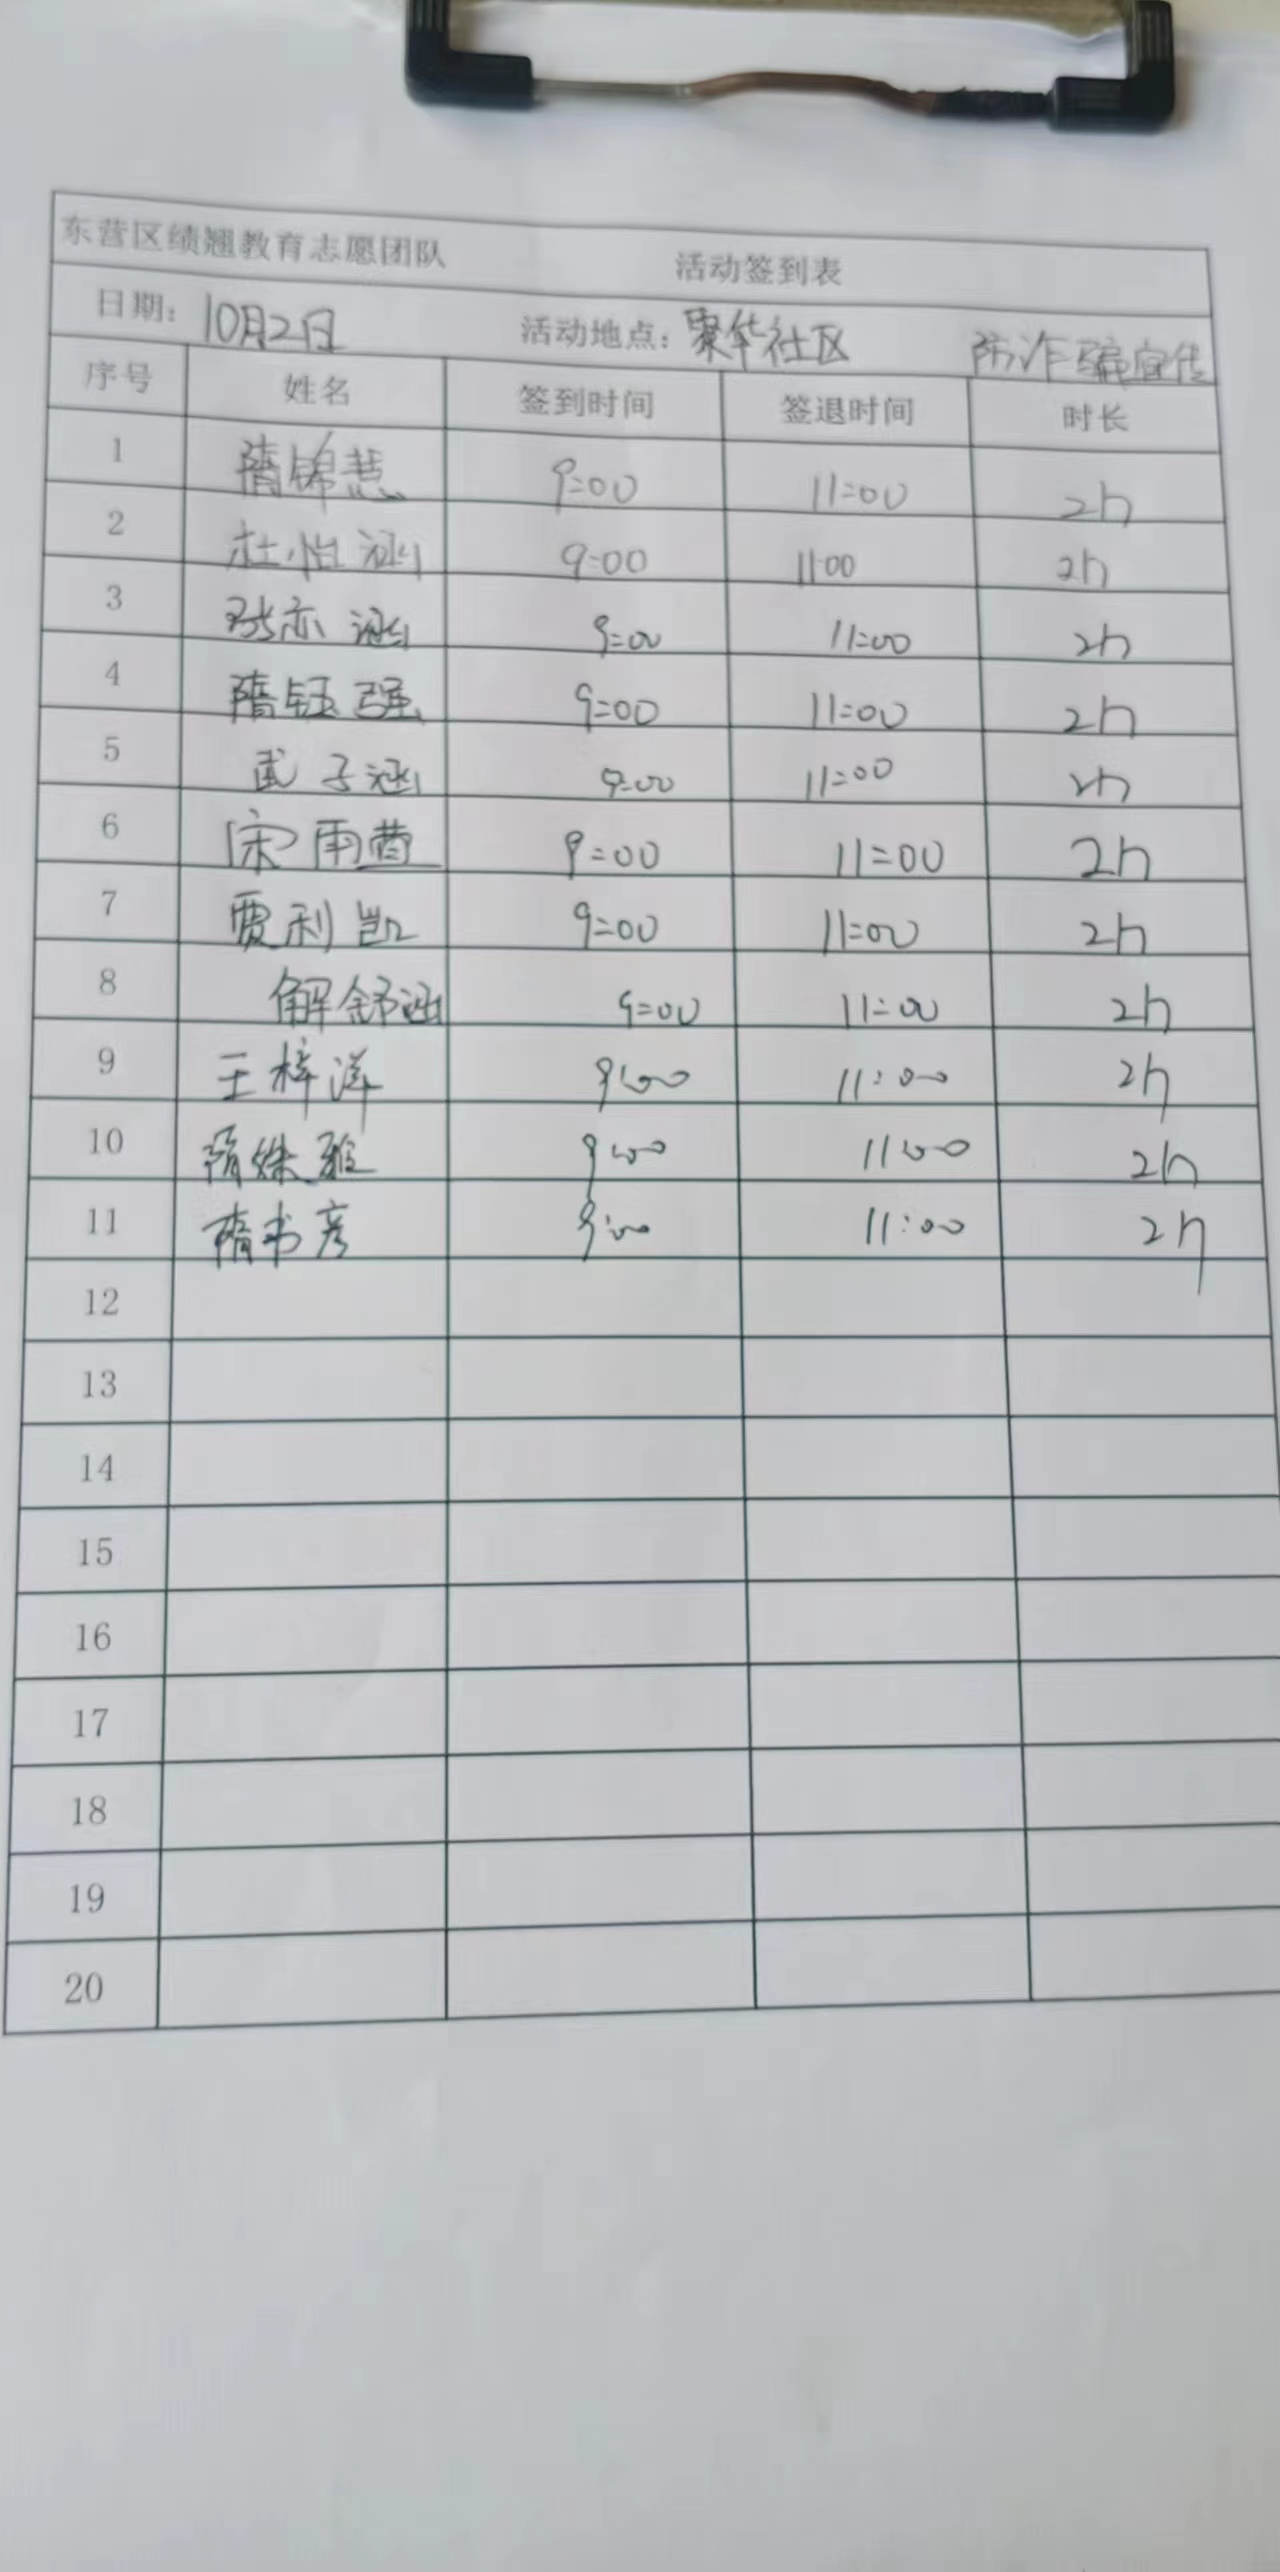 东营区绩翘教育志愿团队 活动签到表
日期：10月2日 活动地点：聚华社区 防诈骗宣传
序号 姓名 签到时间 签退时间 时长
1 隋锦慧 9:00 11:00 2h
2 杜怡涵 9:00 11:00 2h
3 张亦涵 9:00 11:00 2h
4 隋钰强 9:00 11:00 2h
5 武子涵 9:00 11:00 2h
6 宋雨茜 9:00 11:00 2h
7 贾利凯 9:00 11:00 2h
8 解舒涵 9:00 11:00 2h
9 王梓洋 9:00 11:00 2h
10 隋姝雅 9:00 11:00 2h
11 隋书彦 9:00 11:00 2h
12
13
14
15
16
17
18
19
20